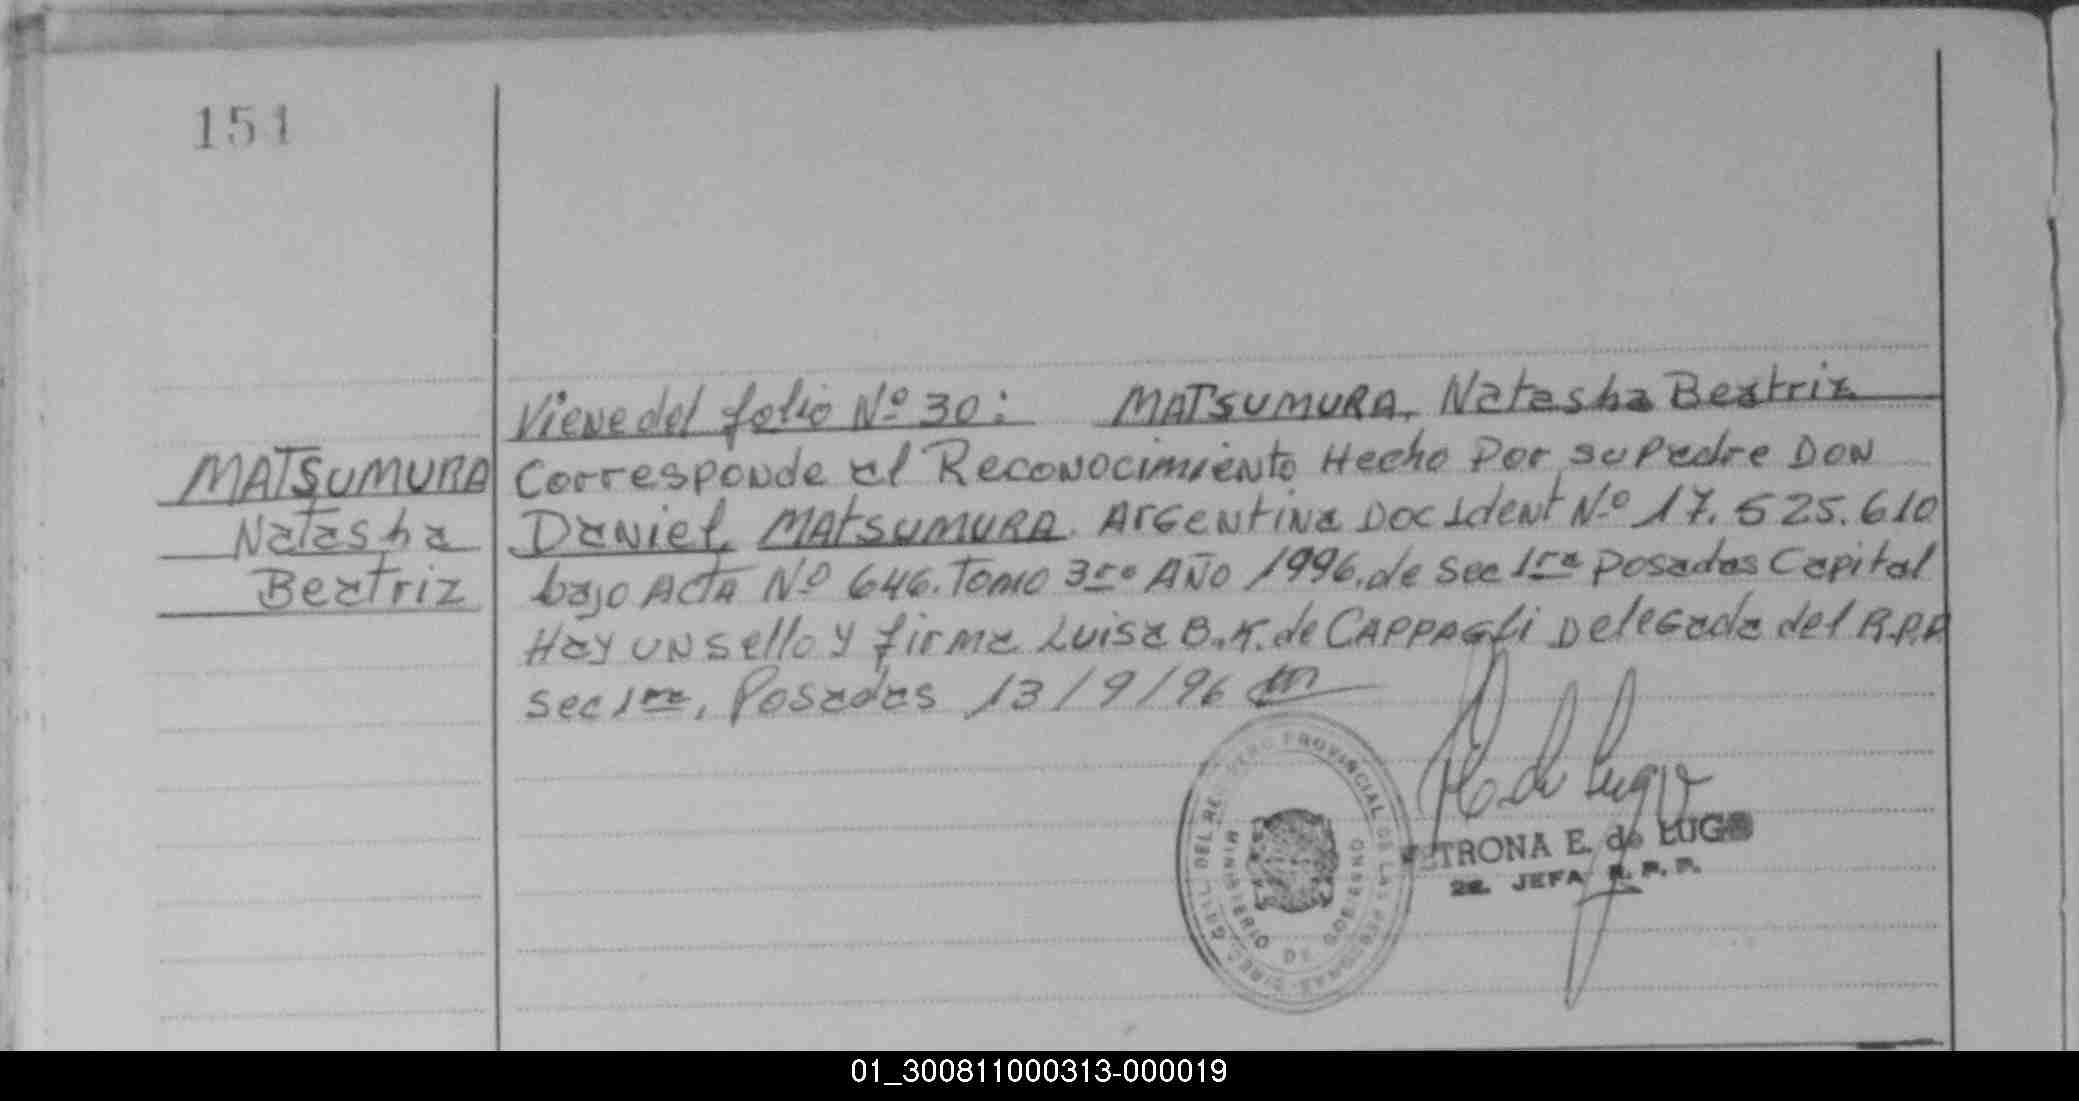 151
Viene del folio Nº 30: MATSUMURA, Natasha Beatriz
MATSUMURA
Natasha
Beatriz
Corresponde al Reconocimiento Hecho Por su Padre DON
Daniel, MATSUMURA. Argentina Doc Ident Nº 17.525.610
bajo ACTA Nº 646. Tomo 3ro Año 1996. de Sec 1ra Posadas Capital
Hay un sello y firma Luisa B. K. de CAPPAGLI Delegada del R.P.P
sec 1ra, Posadas 13/9/96
DIREC. GRAL. DEL REGISTRO PROVINCIAL DE LAS PERSONAS
MINISTERIO DE GOBIERNO
P. de Lugo
PETRONA E. de LUGO
2a. JEFA R. P. P.
01_300811000313-000019